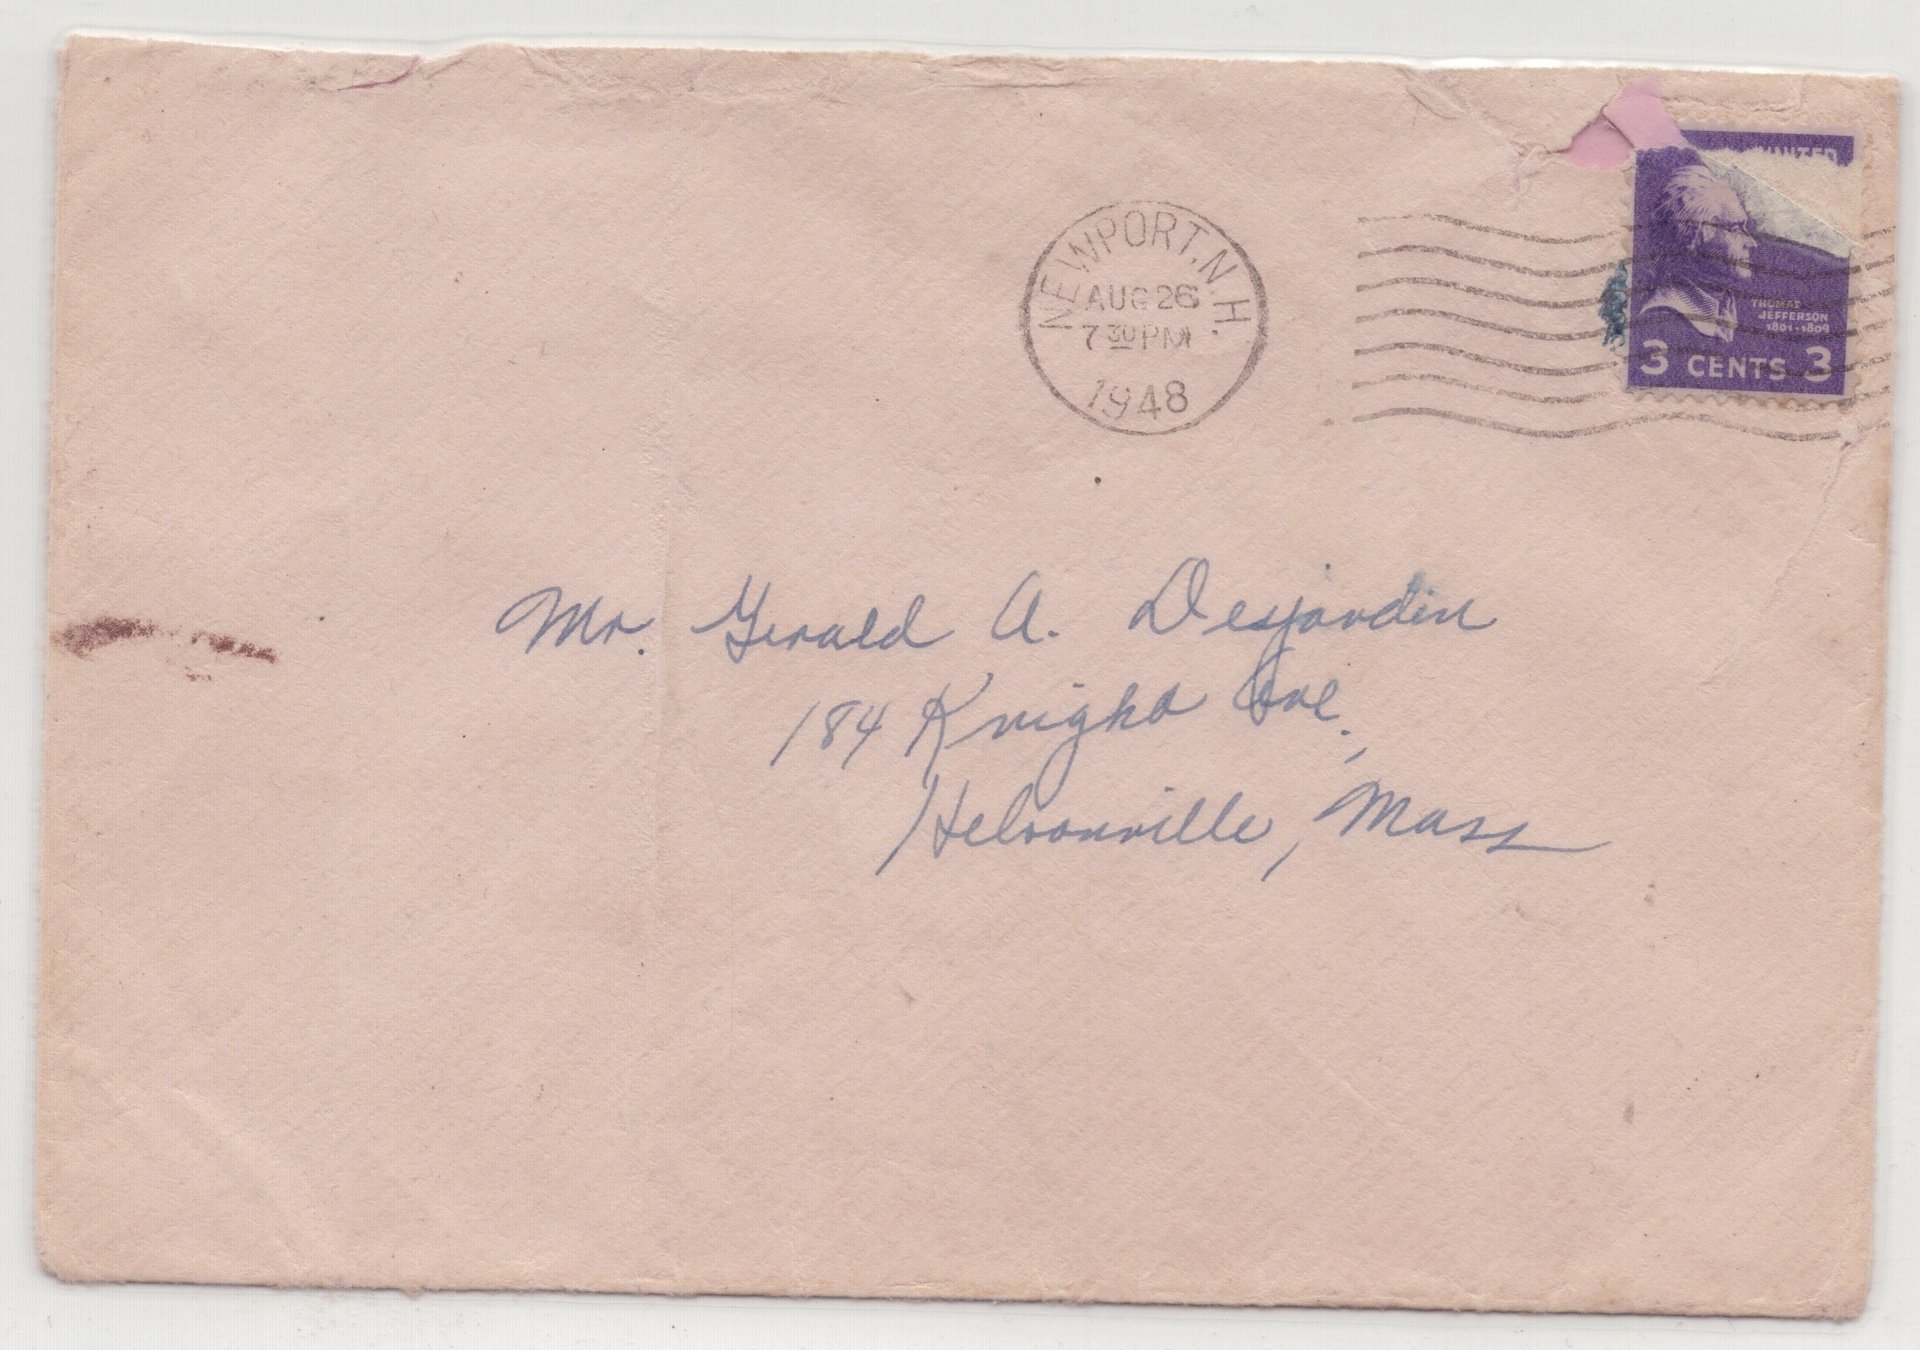 NEWPORT, N.H.
AUG 26
7 30 PM
1948
THOMAS
JEFFERSON
1801-1809
3 CENTS 3
Mr. Gerald A. Desjardin
184 Knight Ave.,
Hebronville, Mass